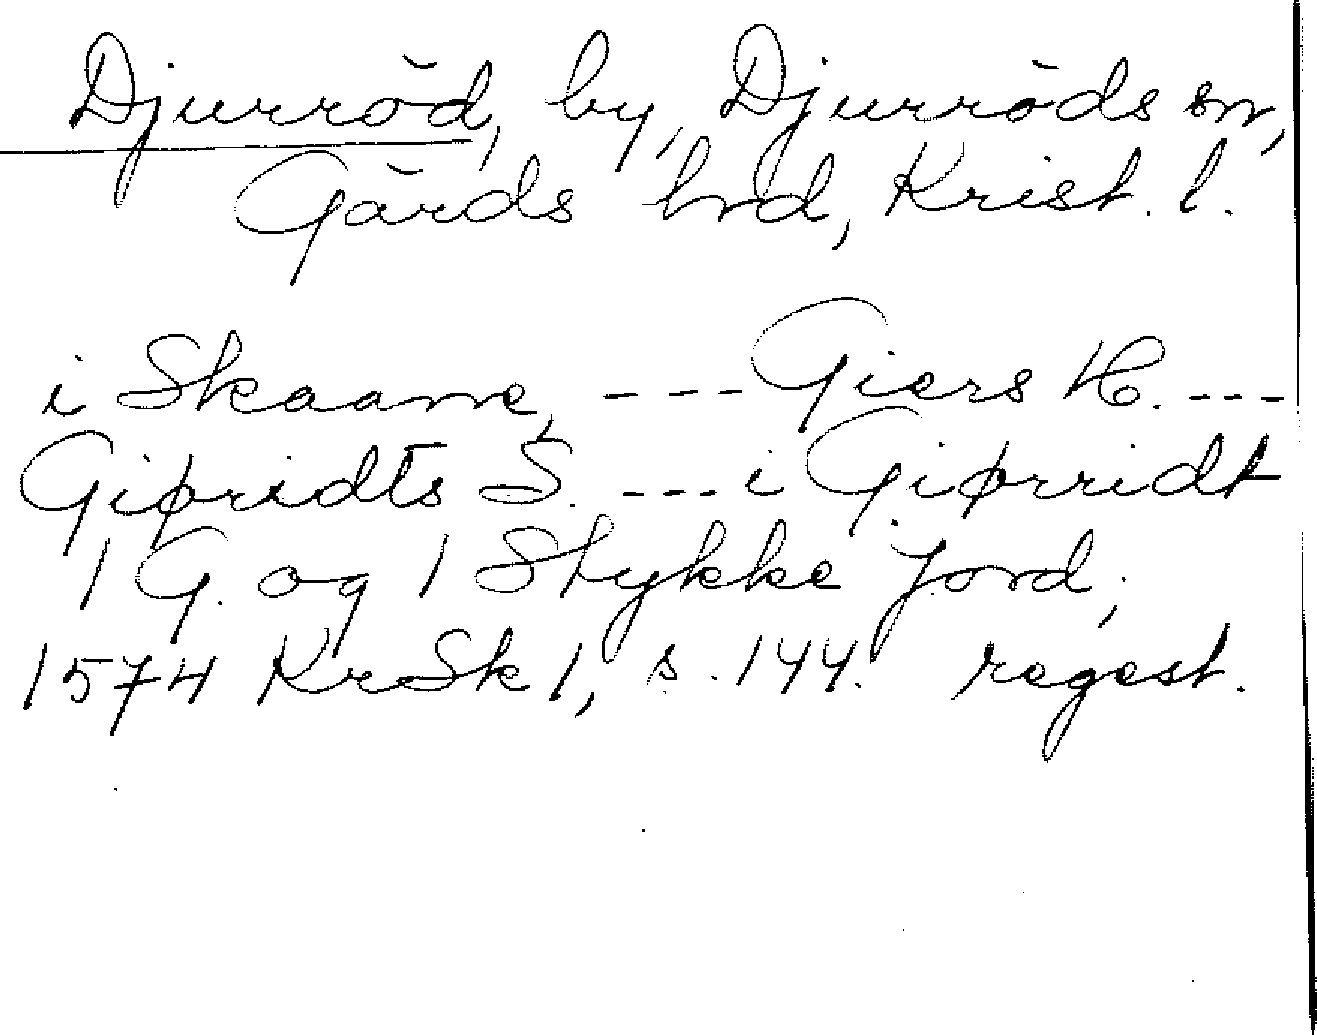 Djurröd, by, Djurröds sn,
Gärds hrd, Krist. l.
i Skaane, --- Giers H. ---
Giøridts S. --- i Giørridt
1 G. og 1 Stykke Jord,
1574 KrSk 1, s. 144. regest.